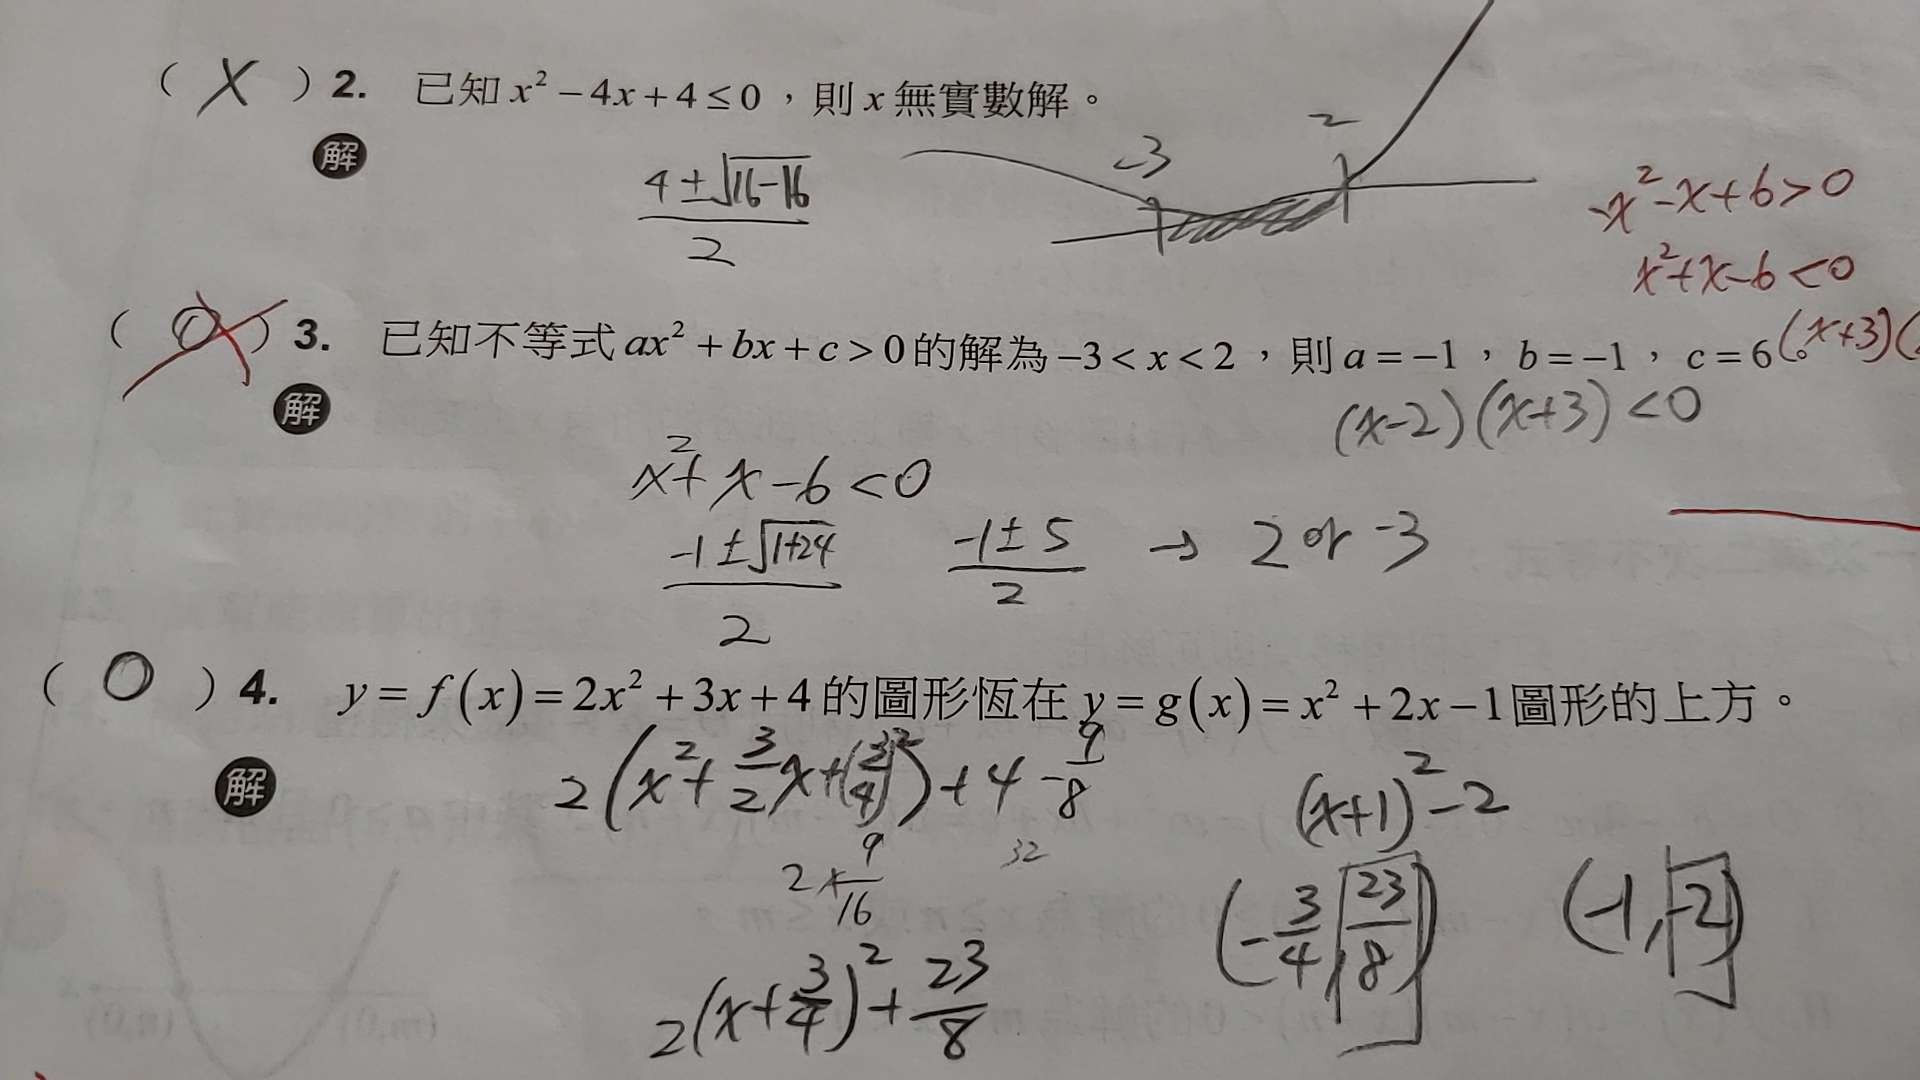 ( X ) 2. 已知 x² − 4x + 4 ≤ 0，則 x 無實數解。
解
(4 ± √(16-16)) / 2
-3 2
-x² - x + 6 > 0
x² + x - 6 < 0
( O ) 3. 已知不等式 ax² + bx + c > 0 的解為 −3 < x < 2，則 a = −1，b = −1，c = 6。
(x+3)(
解
(x-2)(x+3) < 0
x² + x - 6 < 0
(-1 ± √(1+24)) / 2 (-1 ± 5) / 2 → 2 or -3
( O ) 4. y = f(x) = 2x² + 3x + 4 的圖形恆在 y = g(x) = x² + 2x − 1 圖形的上方。
解
2(x² + 3/2 x + (3/4)²) + 4 - 9/8
(x+1)² - 2
2 × 9/16
32
(-3/4, 23/8) (-1, -2)
2(x + 3/4)² + 23/8